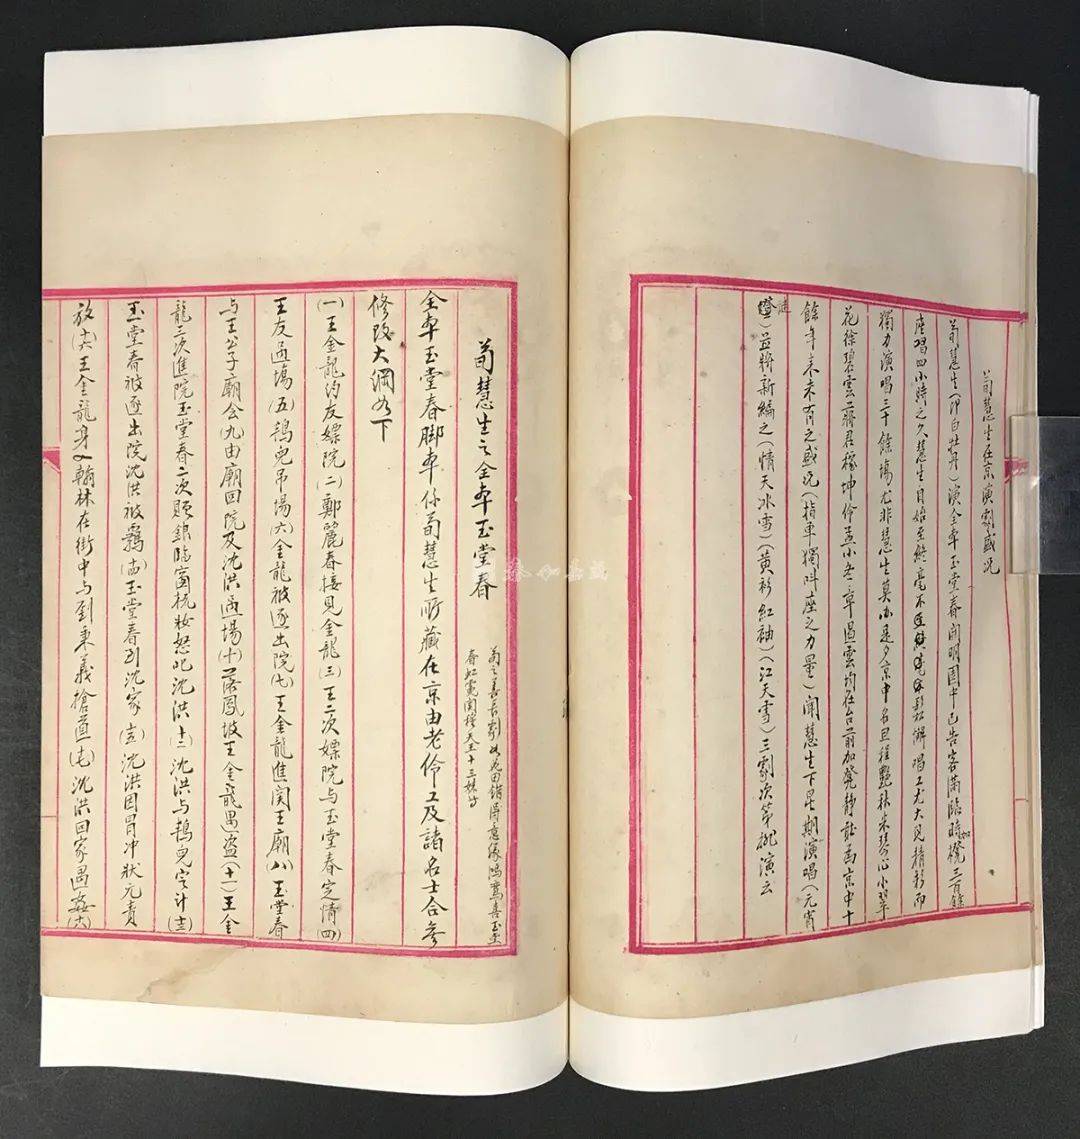 荀慧生在京演劇盛况
荀慧生(即白牡丹)演全本玉堂春開明園中已告客滿臨時櫈三百餘
座習四小時之久慧生自始至終毫不鬆懈唱工尤大見精彩而
獨力演唱三十餘場尤非慧生莫办是夕京中名旦程艷秋朱琴心小翠
花徐碧雲二齋君稼坤伶孟小冬章遏雲均在台前加凳静聼爲京中十
餘年来未有之盛况(指單獨叫座之力量)聞慧生下星期演唱(元宵
謎)並將新編之(情天冰雪)(黄衫紅袖)(江天雪)三劇次第排演云
荀慧生之全本玉堂春
荀之善長劇如花田錯得意缘鴻鸞喜玉堂
春虹霓關
十三妹等
全本玉堂春脚本係荀慧生所藏在京由老伶工及諸名士合参
修改大綱如下
(一)王金龍約友嫖院(二)鄭麗春接見金龍(三)王二次嫖院與玉堂春定情(四)
王友過場(五)鴇兒吊場(六)金龍被逐出院(七)王金龍進関王廟(八)玉堂春
与王公子廟会(九)由廟回院及沈洪過場(十)落鳳坡王金龍遇盗(十一)王金
龍三次進院玉堂春二次贈銀臨窗梳妝怒叱沈洪(十二)沈洪与鴇兒定计(十三)
玉堂春被逐出院沈洪被霸(十四)玉堂春到沈家(十五)沈洪因冒冲状元責
放(十六)王金龍身入翰林在街中与刘秉義搶道(十七)沈洪回家遇姦(十八)
泰和嘉成